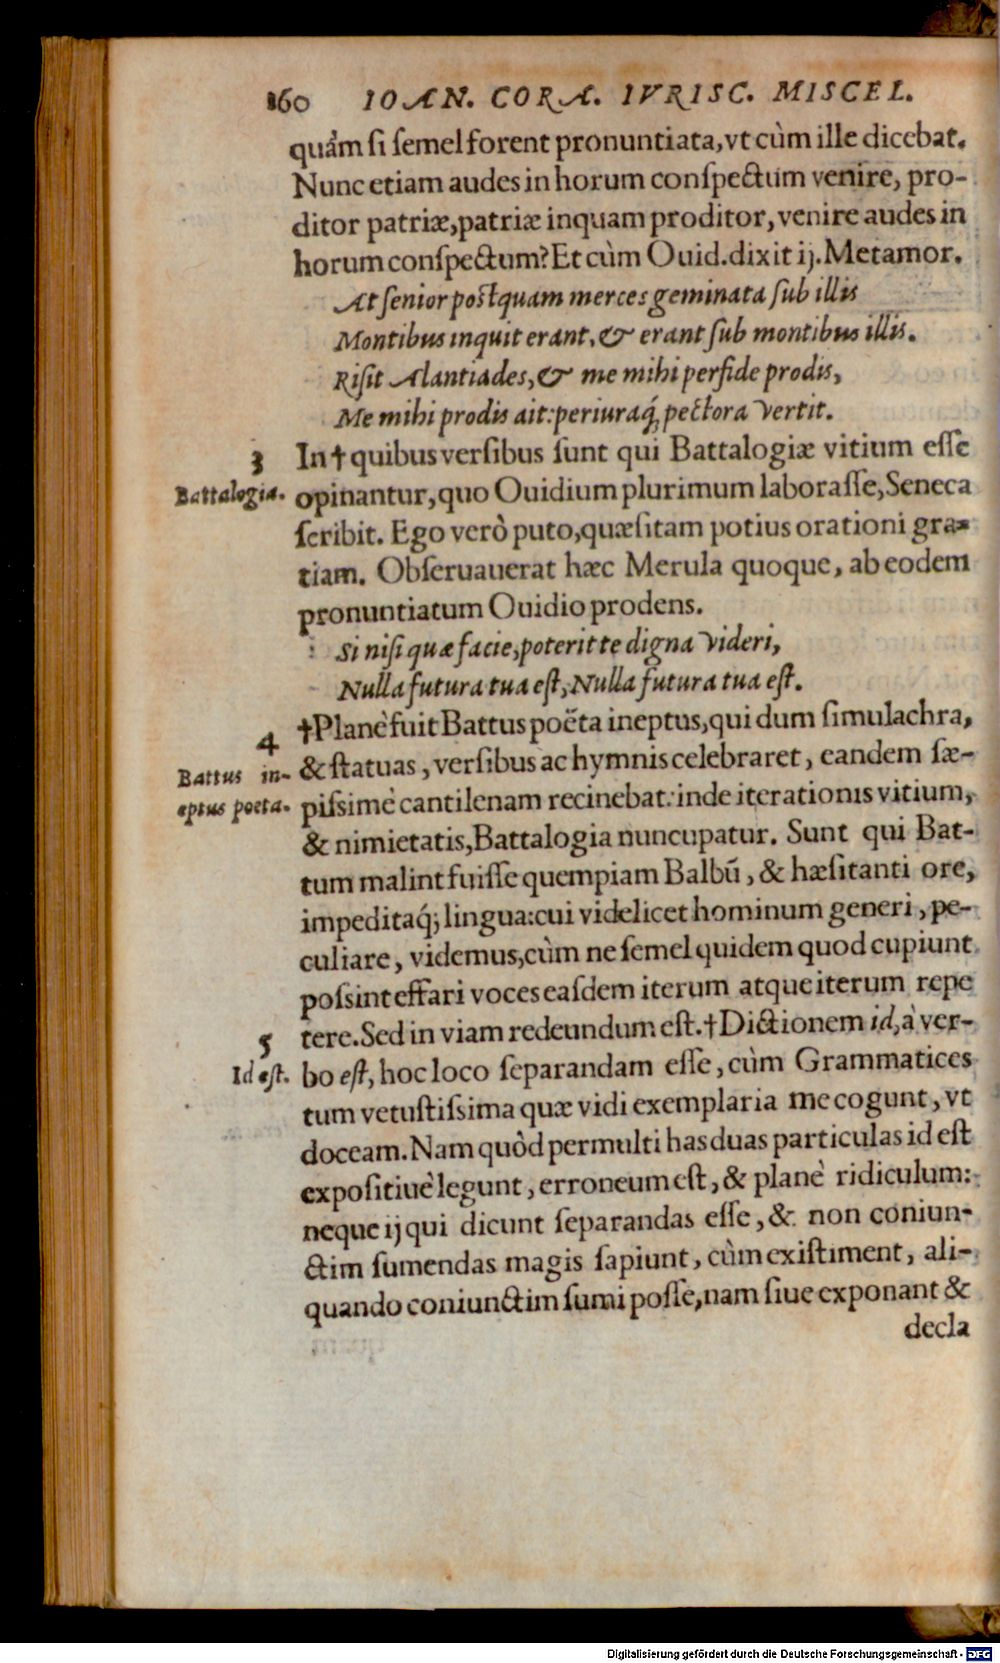 160 IOAN. CORA. IVRISC. MISCEL.
quàm si semel forent pronuntiata, vt cùm ille dicebat.
Nunc etiam audes in horum conspectum venire, pro-
ditor patriæ, patriæ inquam proditor, venire audes in
horum conspectum? Et cùm Ouid. dixit ij. Metamor.
At senior postquam merces geminata sub illis
Montibus inquit erant, & erant sub montibus illis.
Risit Alantiades, & me mihi perfide prodis,
Me mihi prodis ait: periuraq́; pectora vertit.
3 In † quibus versibus sunt qui Battalogiæ vitium esse
Battalogia. opinantur, quo Ouidium plurimum laborasse, Seneca
scribit. Ego verò puto, quæsitam potius orationi gra-
tiam. Obseruauerat hæc Merula quoque, ab eodem
pronuntiatum Ouidio prodens.
Si nisi quæ facie, poterit te digna videri,
Nulla futura tua est, Nulla futura tua est.
4 † Planè fuit Battus poëta ineptus, qui dum simulachra,
Battus in- & statuas, versibus ac hymnis celebraret, eandem sæ-
eptus poeta. pissimè cantilenam recinebat: inde iterationis vitium,
& nimietatis, Battalogia nuncupatur. Sunt qui Bat-
tum malint fuisse quempiam Balbū, & hæsitanti ore,
impeditaq́; lingua: cui videlicet hominum generi, pe-
culiare, videmus, cùm ne semel quidem quod cupiunt
possint effari voces easdem iterum atque iterum repe
5 tere. Sed in viam redeundum est. † Dictionem id, à ver-
Id est. bo est, hoc loco separandam esse, cùm Grammatices
tum vetustissima quæ vidi exemplaria me cogunt, vt
doceam. Nam quòd permulti has duas particulas id est
expositiuè legunt, erroneum est, & planè ridiculum:
neque ij qui dicunt separandas esse, & non coniun-
ctim sumendas magis sapiunt, cùm existiment, ali-
quando coniunctim sumi posse, nam siue exponant &
decla
Digitalisierung gefördert durch die Deutsche Forschungsgemeinschaft - DFG